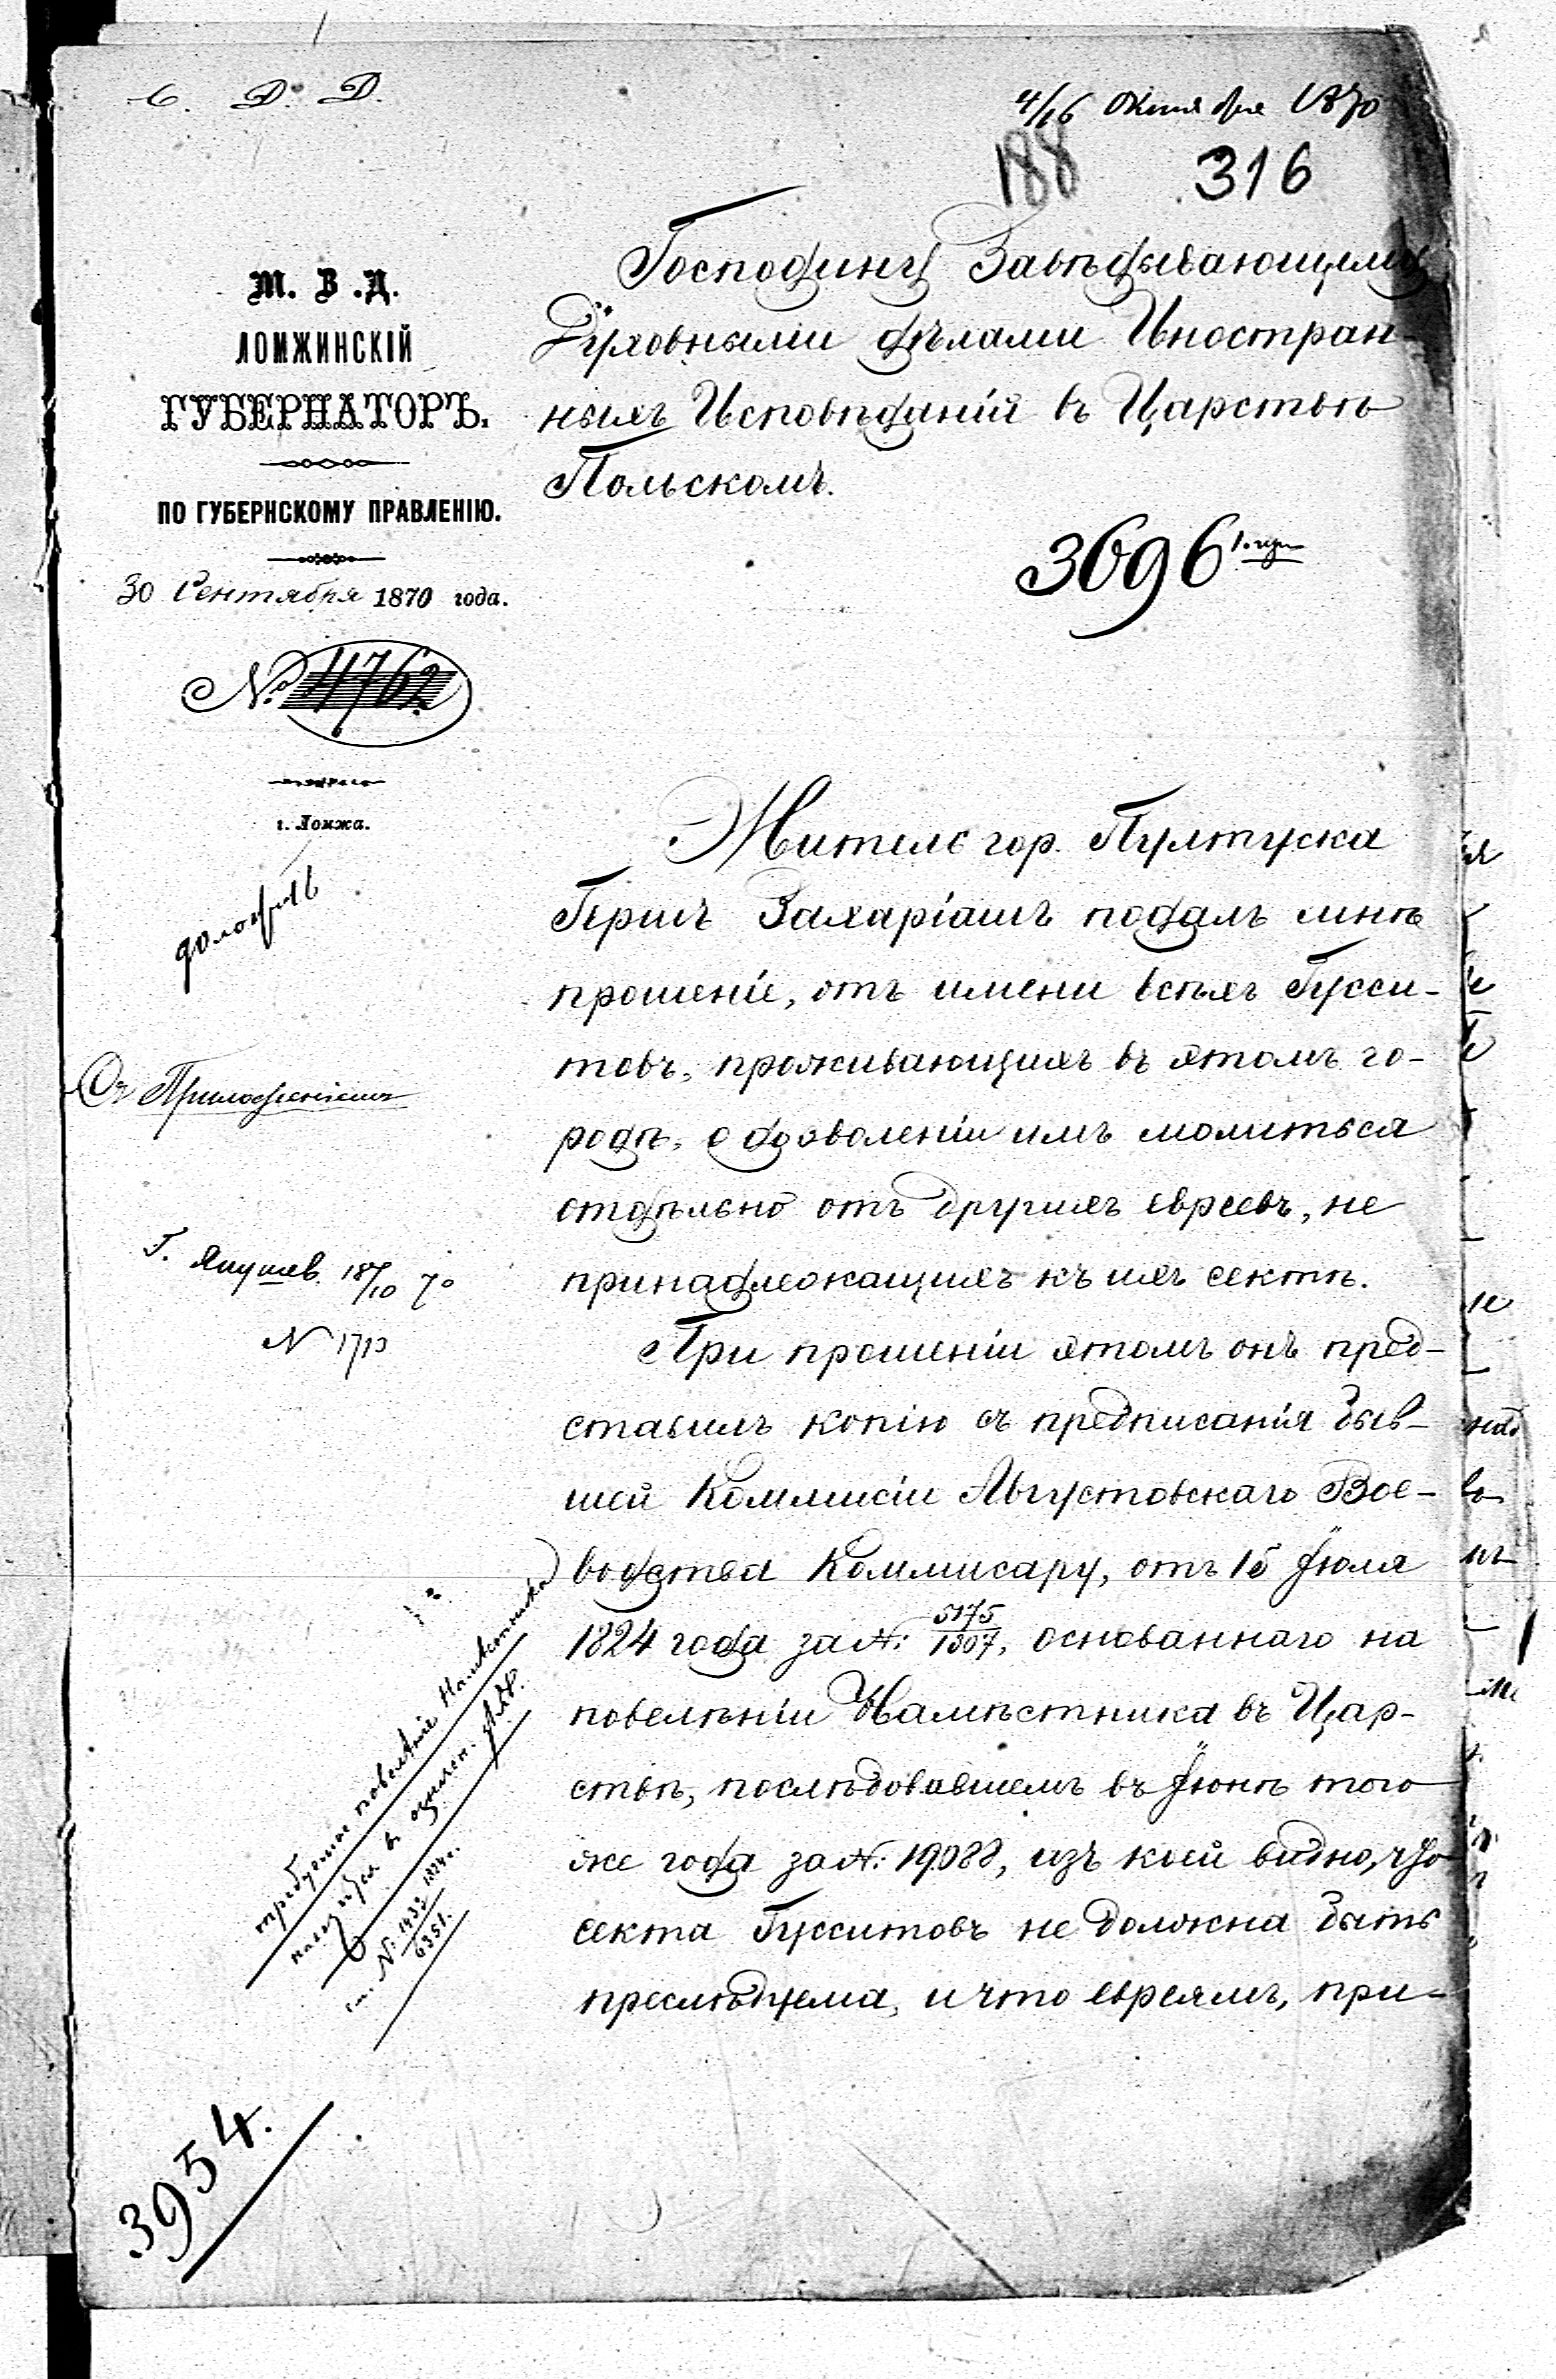 С. Д. Д.
4/16 Октября 1870
188 316
М. В. Д.
ЛОМЖИНСКІЙ
ГУБЕРНАТОРЪ.
ПО ГУБЕРНСКОМУ ПРАВЛЕНІЮ.
30 Сентября 1870 года.
№ 11762
г. Ломжа.
Съ Приложеніемъ
18/10 70
N 1713
Господину Завѣдывающему
Духовными дѣлами Иностран-
ныхъ Исповѣданій въ Царствѣ
Польскомъ.
3696
Житель гор. Пултуска
Гершъ Захаріашъ подалъ мнѣ
прошеніе, отъ имени всѣхъ Гусси-
товъ, проживающихъ въ этомъ го-
родѣ, о дозволеніи имъ молиться
отдѣльно отъ другихъ евреевъ, не
принадлежащихъ къ ихъ сектѣ.
При прошеніи этомъ онъ пред-
ставилъ копію съ предписанія быв-
шей Коммисіи Августовскаго Вое-
водства Коммисару, отъ 15 Іюля
1824 года за №: 5175/1307, основаннаго на
повелѣніи Намѣстника въ Цар-
ствѣ, послѣдовавшемъ въ Іюнѣ того
же года за №: 19088, изъ коей видно, что
секта Гусситовъ не должна быть
преслѣдуема, и что евреямъ, при-
требуемое повелѣніе Намѣстника
см. № 1432/6351. 1824 г.
3954.